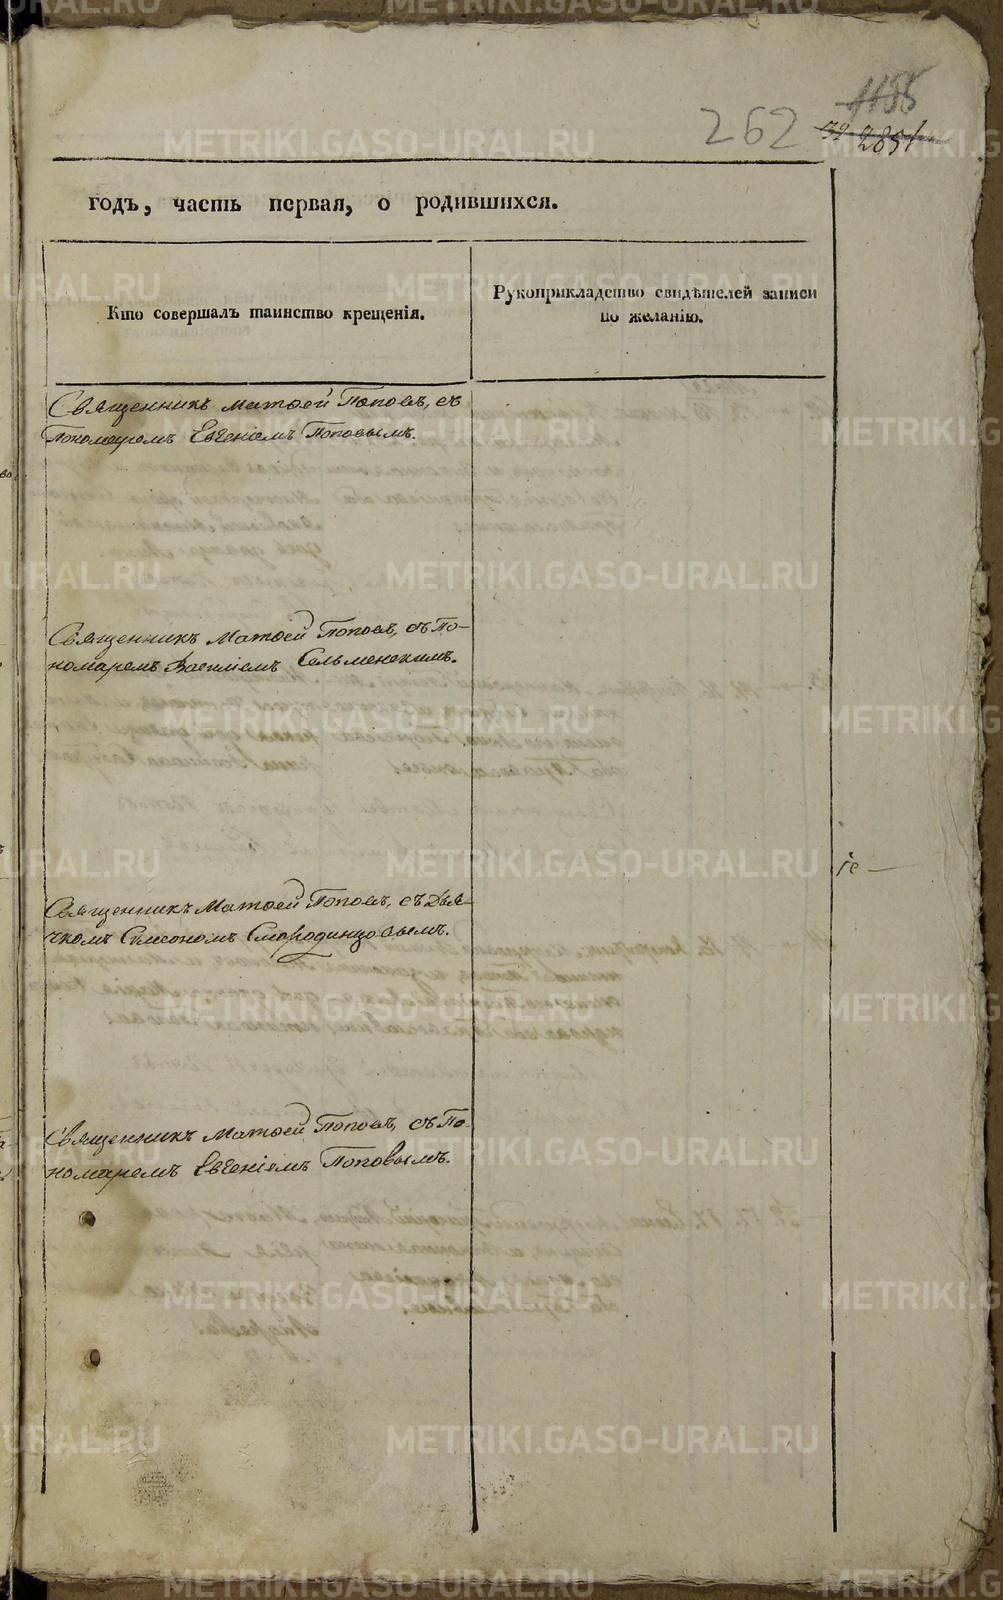 262
1155
2851
годъ, часть первая, о родившихся.
Кто совершалъ таинство крещенія.
Рукоприкладство свидѣтелей записи
по желанію.
Священникъ Матѳей Поповъ, съ
Пономаремъ Евгеніемъ Поповымъ.
Священникъ Матѳей Поповъ, съ По-
номаремъ Василіемъ Сельменскимъ.
Священникъ Матѳей Поповъ, съ Дья-
чкомъ Симеономъ Смородинцовымъ.
іе—
Священникъ Матѳей Поповъ, съ По-
номаремъ Евгеніемъ Поповымъ.
METRIKI.GASO-URAL.RU